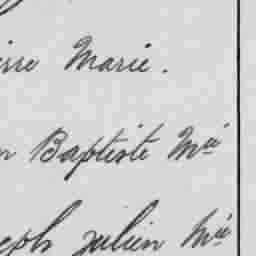 irre Marie.
n Baptiste Mie
seph julien Mie